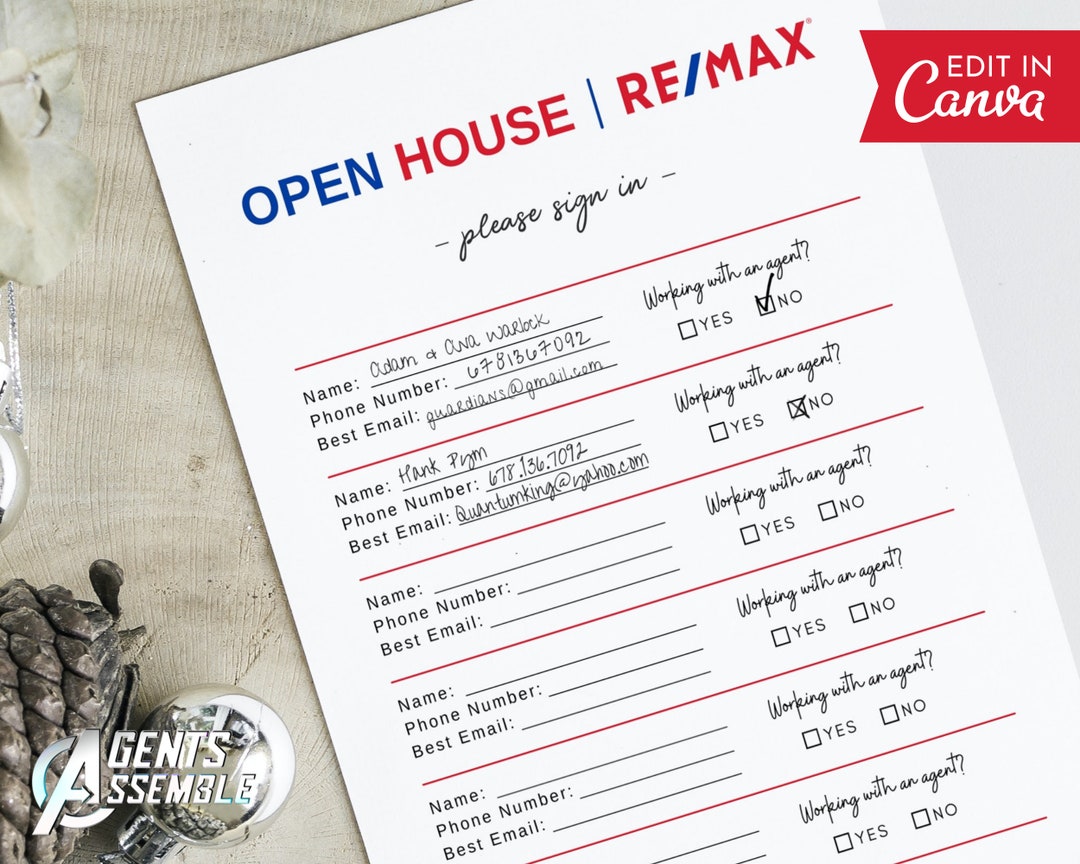 OPEN HOUSE | RE/MAX®
EDIT IN
Canva
- please sign in -
Working with an agent?
YES NO
Name: Adam & Ava Warlock
Phone Number: 6781367092
Best Email: guardians@gmail.com
Working with an agent?
YES NO
Name: Hank Pym
Phone Number: 678.136.7092
Best Email: Quantumking@yahoo.com
Working with an agent?
YES NO
Name:
Phone Number:
Best Email:
Working with an agent?
YES NO
Name:
Phone Number:
Best Email:
Working with an agent?
YES NO
Name:
Phone Number:
Best Email:
Working with an agent?
YES NO
AGENTS
ASSEMBLE